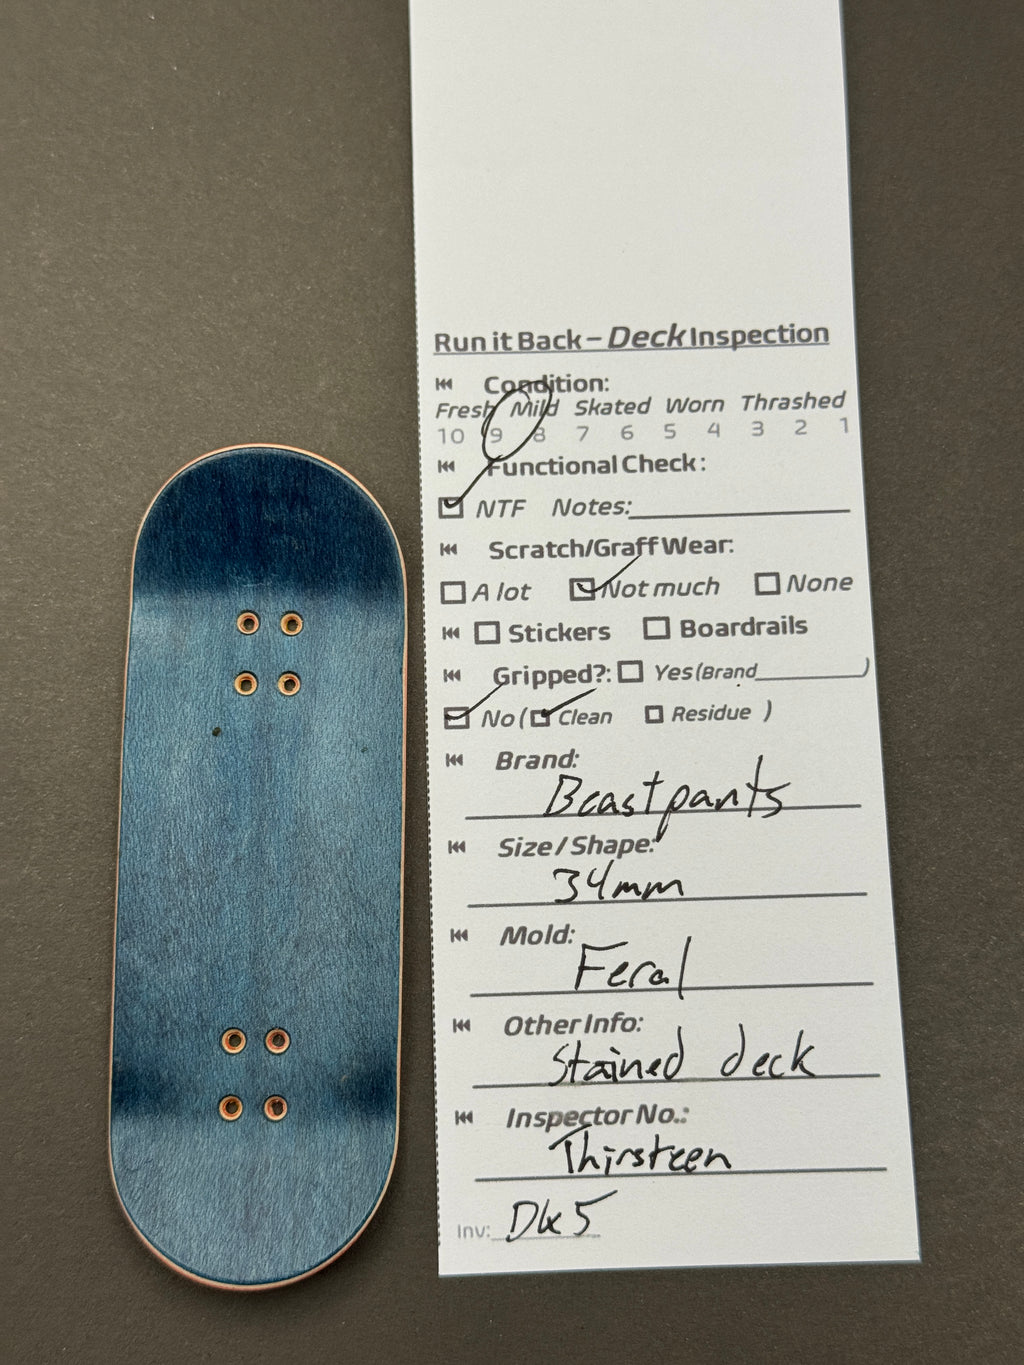 Run it Back – Deck Inspection
Condition:
Fresh Mild Skated Worn Thrashed
10 9 8 7 6 5 4 3 2 1
Functional Check:
NTF Notes:
Scratch/Graff Wear:
A lot Not much None
Stickers Boardrails
Gripped?: Yes (Brand )
No ( Clean Residue )
Brand:
Beastpants
Size / Shape:
34mm
Mold:
Feral
Other Info:
Stained deck
Inspector No.:
Thirsteen
Inv: